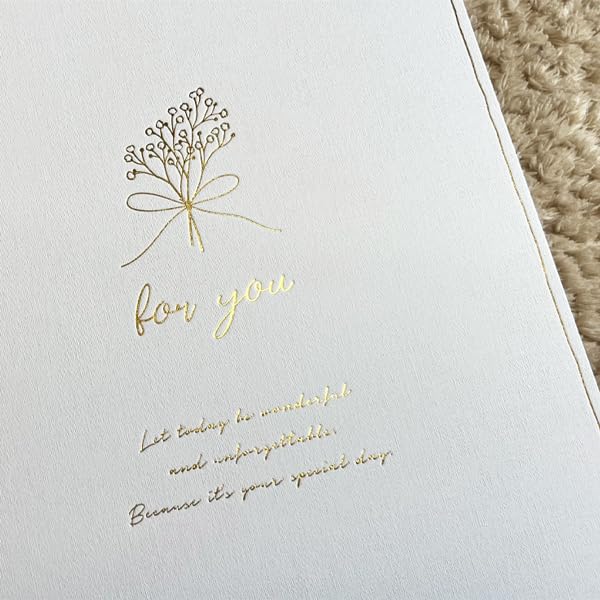 for you
Let today be wonderful
and unforgettable.
Because it's your special day.